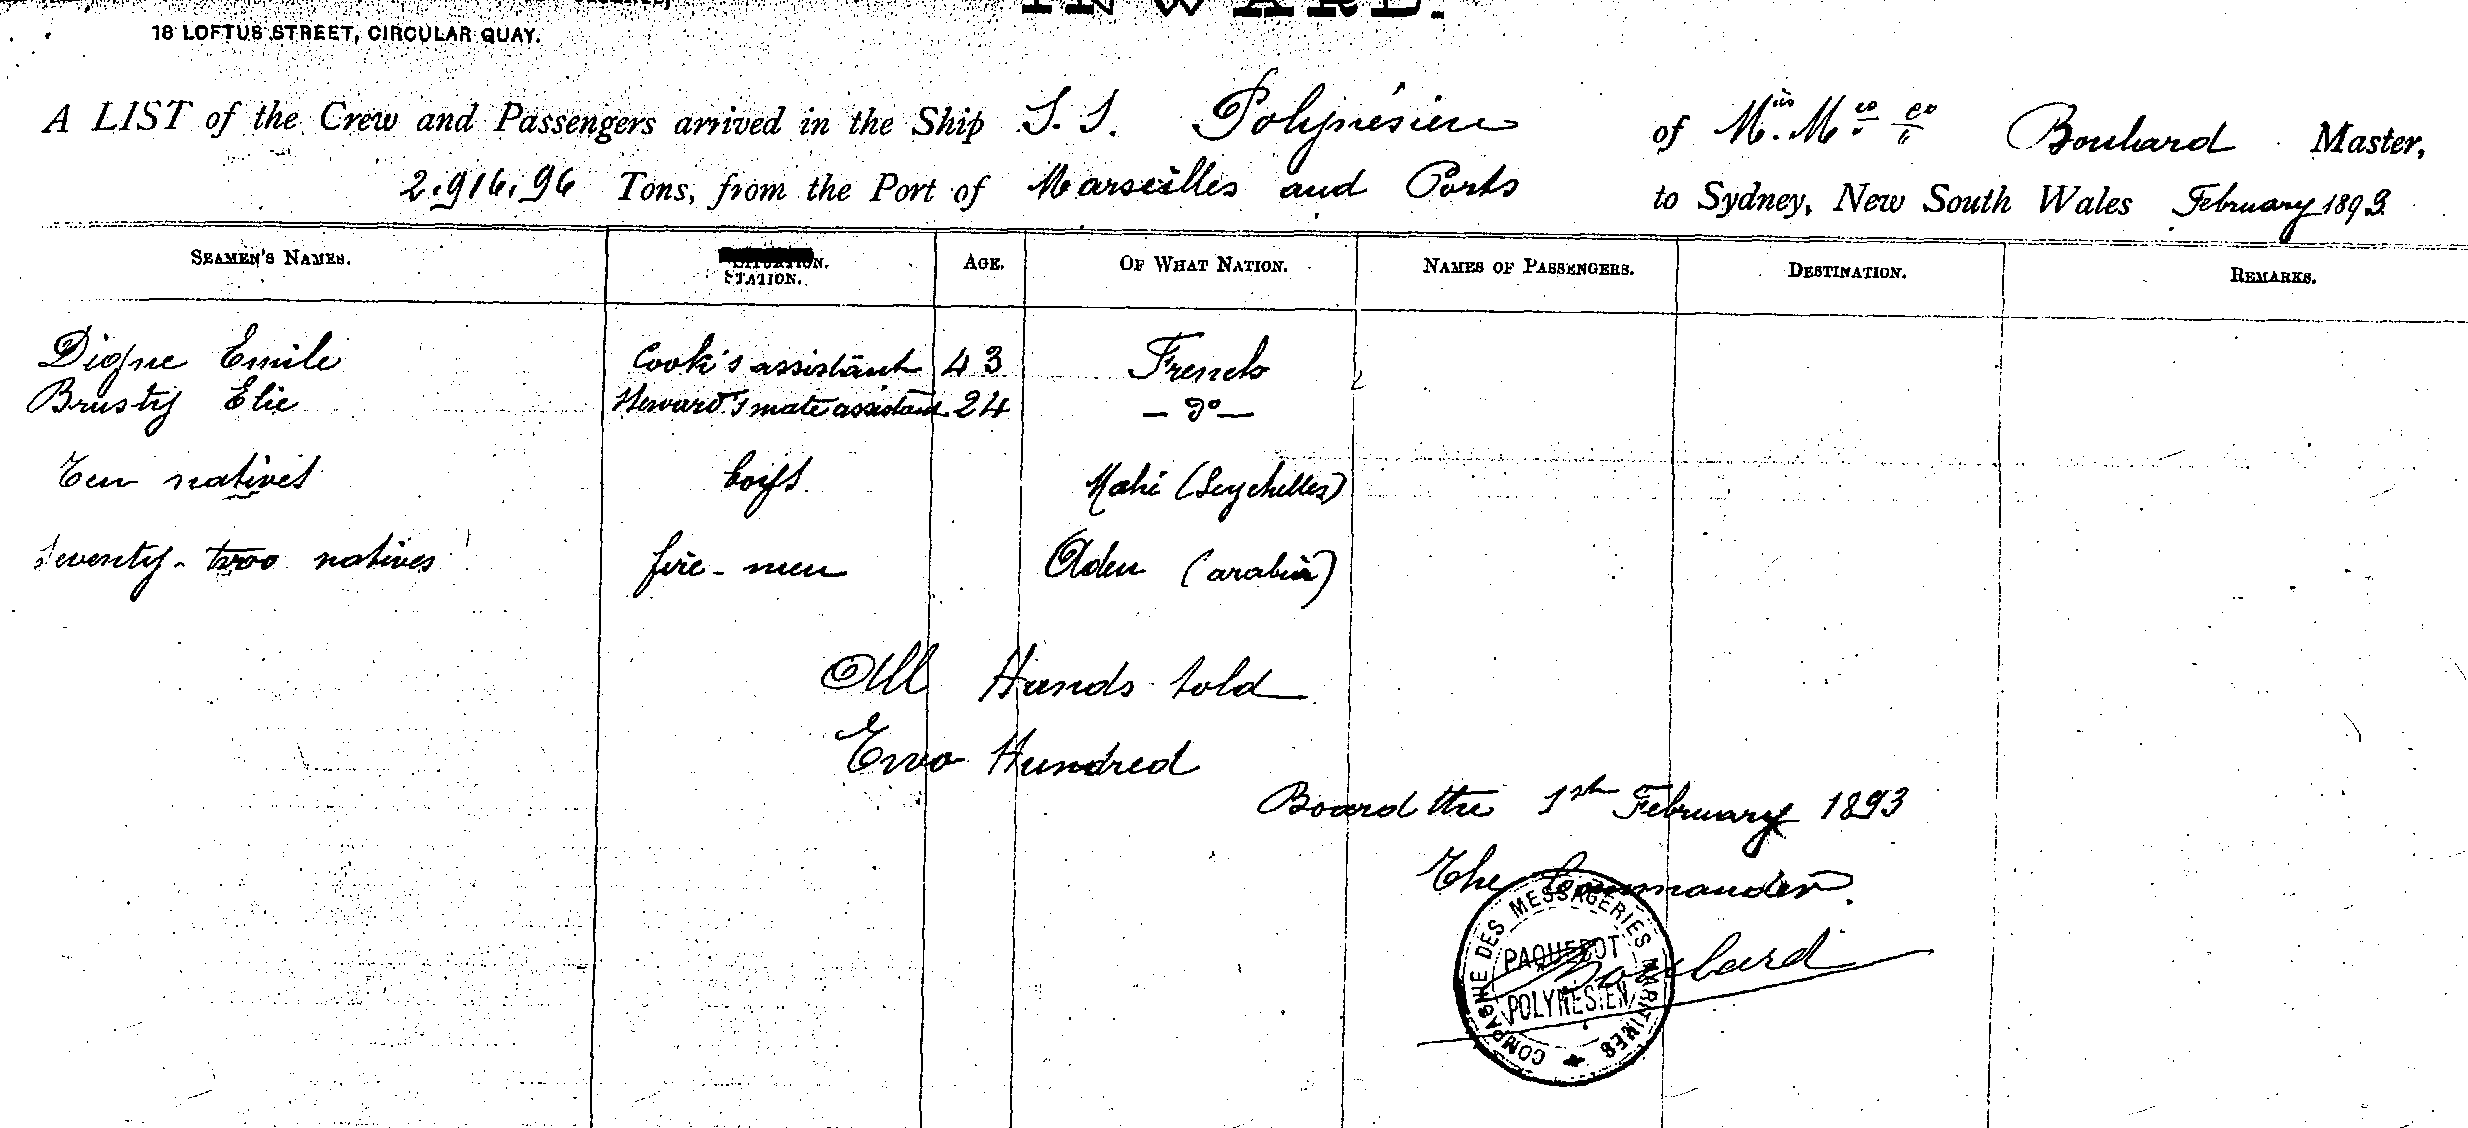 INWARD.
18 LOFTUS STREET, CIRCULAR QUAY.
A LIST of the Crew and Passengers arrived in the Ship S. S. Polynésien of Boulard Master,
2.916,96 Tons, from the Port of Marseilles and Ports to Sydney, New South Wales February 1893
SEAMEN'S NAMES. STATION. AGE. OF WHAT NATION. NAMES OF PASSENGERS. DESTINATION. REMARKS.
Digne Emile Cook's assistant 43 French
Brusty Elie Steward's mate assistant 24 — do —
Ten natives boys Mahé (Seychelles)
Seventy-two natives fire-men Aden (arabia)
All Hands told
Two Hundred
Board the 1st February 1893
The Commander.
Boulard
COMPAGNIE DES MESSAGERIES MARITIMES
PAQUEBOT
POLYNESIEN